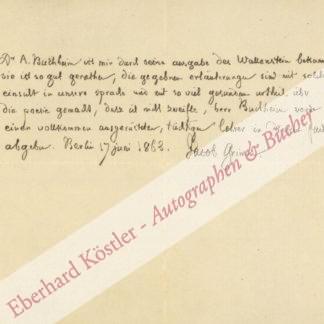 Dr A. Buchheim ist mir durch seine ausgabe des Wallenstein bekannt
sie ist so gut gerathen, die gegebnen erläuterungen sind mit solcher
einsicht in unsere sprache und mit so viel gesundem urtheil über
die poesie gemacht, dasz ich nicht zweifle, herr Buchheim werde
einen vollkommen ausgerüsteten, tüchtigen lehrer in
abgeben. Berlin 17 juni 1862. Jacob Grimm
Eberhard Köstler - Autographen & Bücher